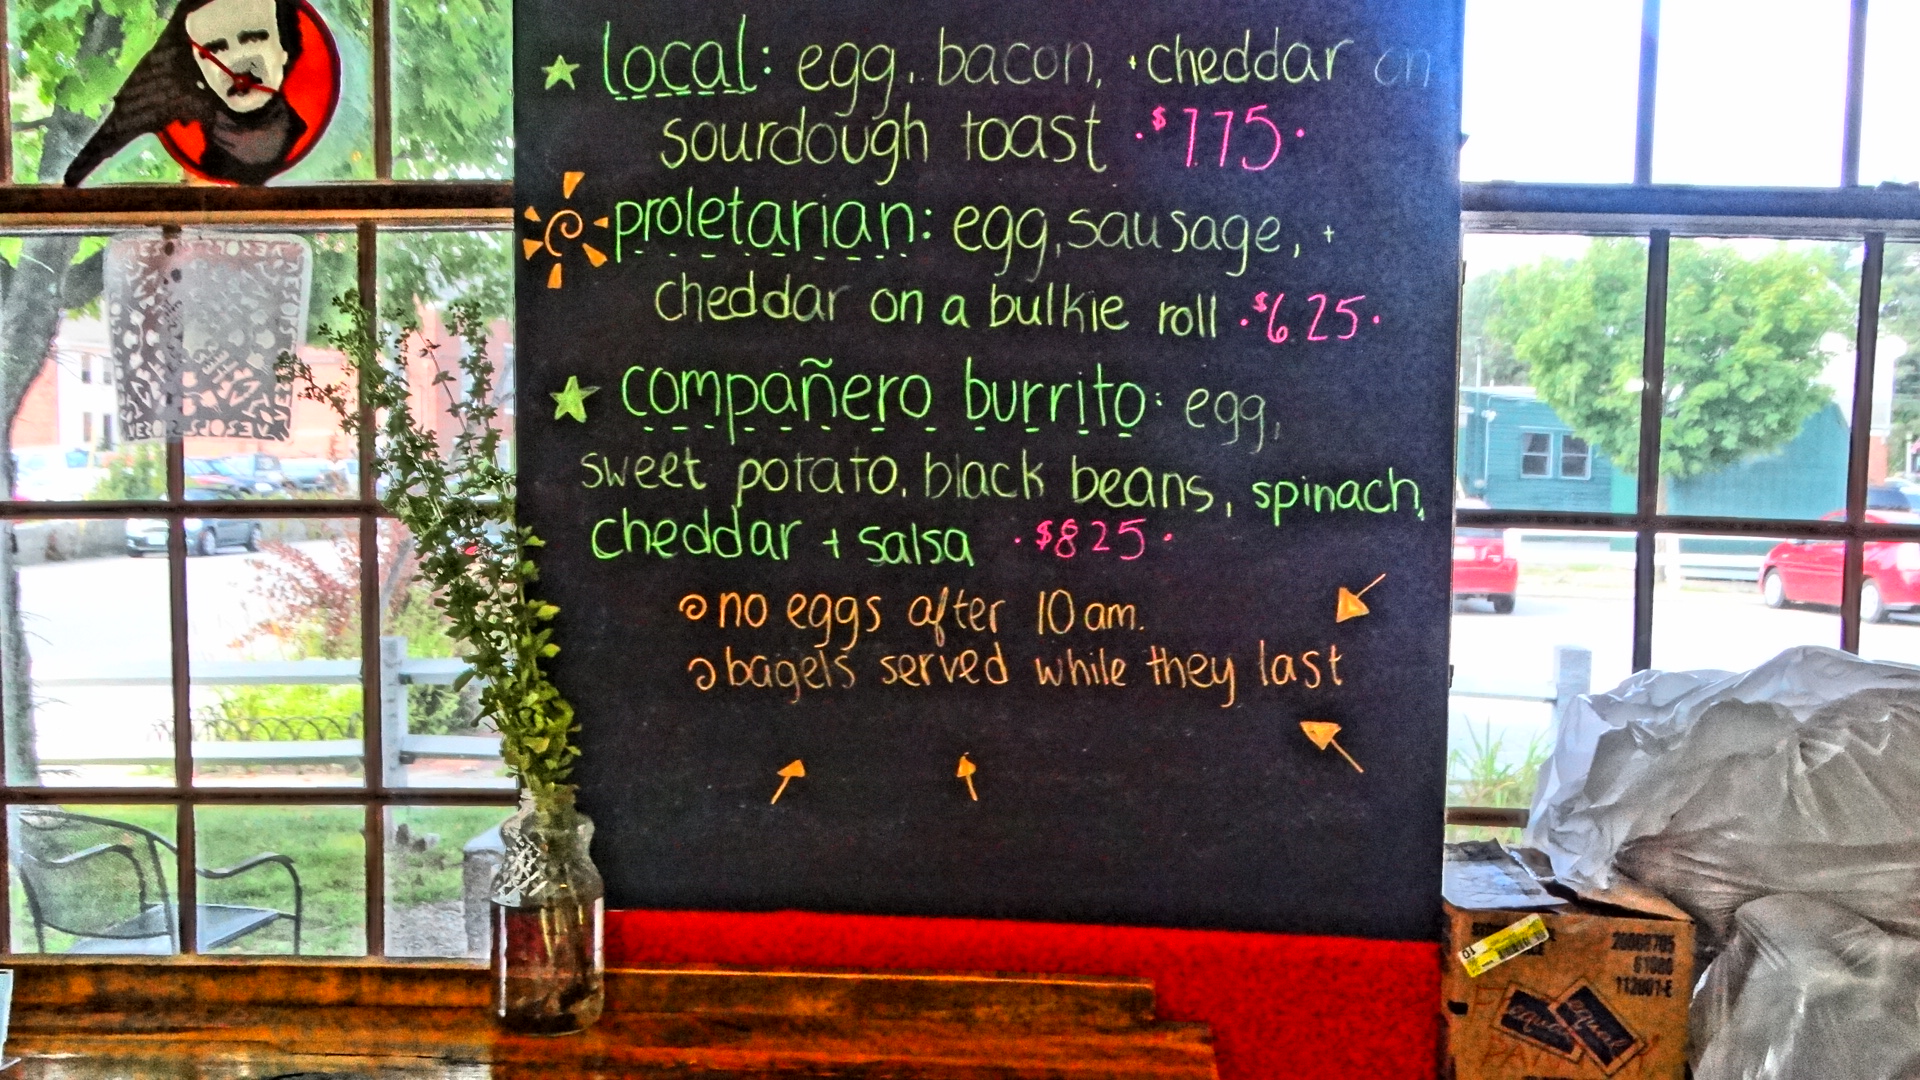 local: egg, bacon, + cheddar on
sourdough toast · $7.75 ·
proletarian: egg, sausage, +
cheddar on a bulkie roll · $6.25 ·
compañero burrito: egg,
sweet potato, black beans, spinach,
cheddar + salsa · $8.25 ·
no eggs after 10 am.
bagels served while they last
20009705
equal equal